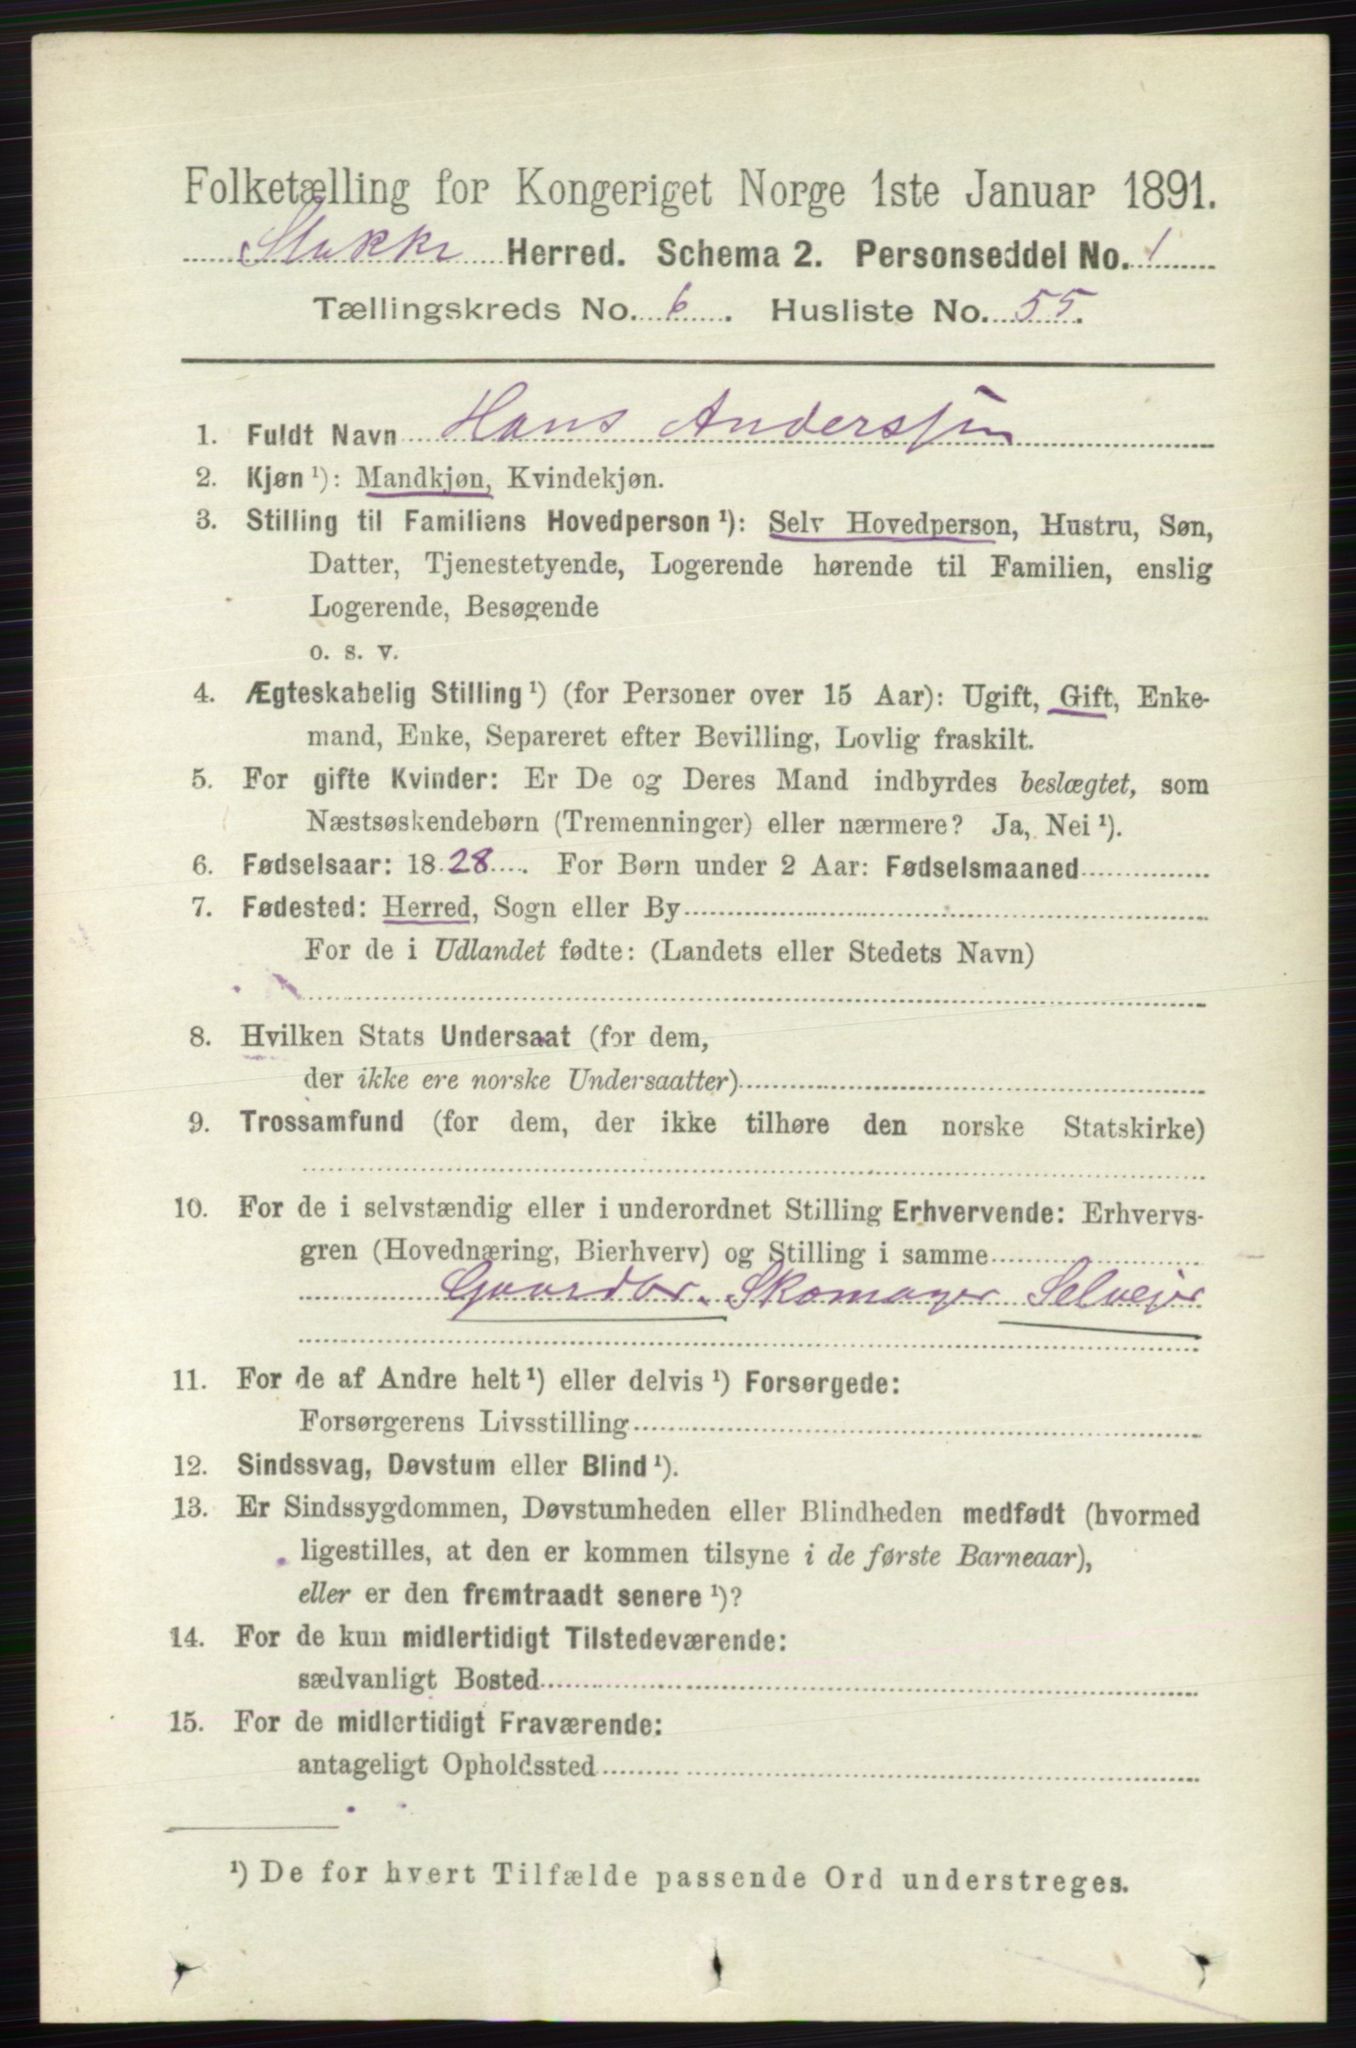 Folketælling for Kongeriget Norge 1ste Januar 1891.
Stokke Herred. Schema 2. Personseddel No. 1
Tællingskreds No. 6. Husliste No. 55.
1. Fuldt Navn Hans Anderssøn
2. Kjøn ¹): Mandkjøn, Kvindekjøn.
3. Stilling til Familiens Hovedperson ¹): Selv Hovedperson, Hustru, Søn,
Datter, Tjenestetyende, Logerende hørende til Familien, enslig
Logerende, Besøgende
o. s. v.
4. Ægteskabelig Stilling ¹) (for Personer over 15 Aar): Ugift, Gift, Enke-
mand, Enke, Separeret efter Bevilling, Lovlig fraskilt.
5. For gifte Kvinder: Er De og Deres Mand indbyrdes beslægtet, som
Næstsøskendebørn (Tremenninger) eller nærmere? Ja, Nei ¹).
6. Fødselsaar: 1828. For Børn under 2 Aar: Fødselsmaaned
7. Fødested: Herred, Sogn eller By
For de i Udlandet fødte: (Landets eller Stedets Navn)
8. Hvilken Stats Undersaat (for dem,
der ikke ere norske Undersaatter)
9. Trossamfund (for dem, der ikke tilhøre den norske Statskirke)
10. For de i selvstændig eller i underordnet Stilling Erhvervende: Erhvervs-
gren (Hovednæring, Bierhverv) og Stilling i samme
Gaardbr. Skomager Selvejer
11. For de af Andre helt ¹) eller delvis ¹) Forsørgede:
Forsørgerens Livsstilling
12. Sindssvag, Døvstum eller Blind ¹).
13. Er Sindssygdommen, Døvstumheden eller Blindheden medfødt (hvormed
ligestilles, at den er kommen tilsyne i de første Barneaar),
eller er den fremtraadt senere ¹)?
14. For de kun midlertidigt Tilstedeværende:
sædvanligt Bosted
15. For de midlertidigt Fraværende:
antageligt Opholdssted
¹) De for hvert Tilfælde passende Ord understreges.